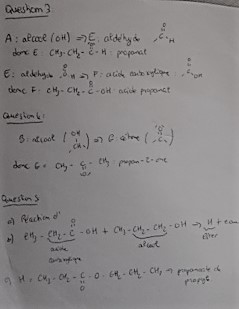 Question 3.
A : alcool (OH) => E : aldehyde C H
O
donc E : CH3 - CH2 - C - H : propanal
E : aldehyde C H => F : acide carboxylique : C OH
O
donc F : CH3 - CH2 - C - OH : acide
Question 4 :
B : alcool ( OH CH3 ) => G
O
donc G = CH3 - C - CH3 : propan-2-one
Question 5
a) Réaction d'
b) CH3 - CH2 - C - OH + CH3 - CH2 - CH2 - OH -> H + eau
O
acide alcool ester
carboxylique
c) H : CH3 - CH2 - C - O - CH2 - CH2 - CH3 -> propanoate de
O
propyle